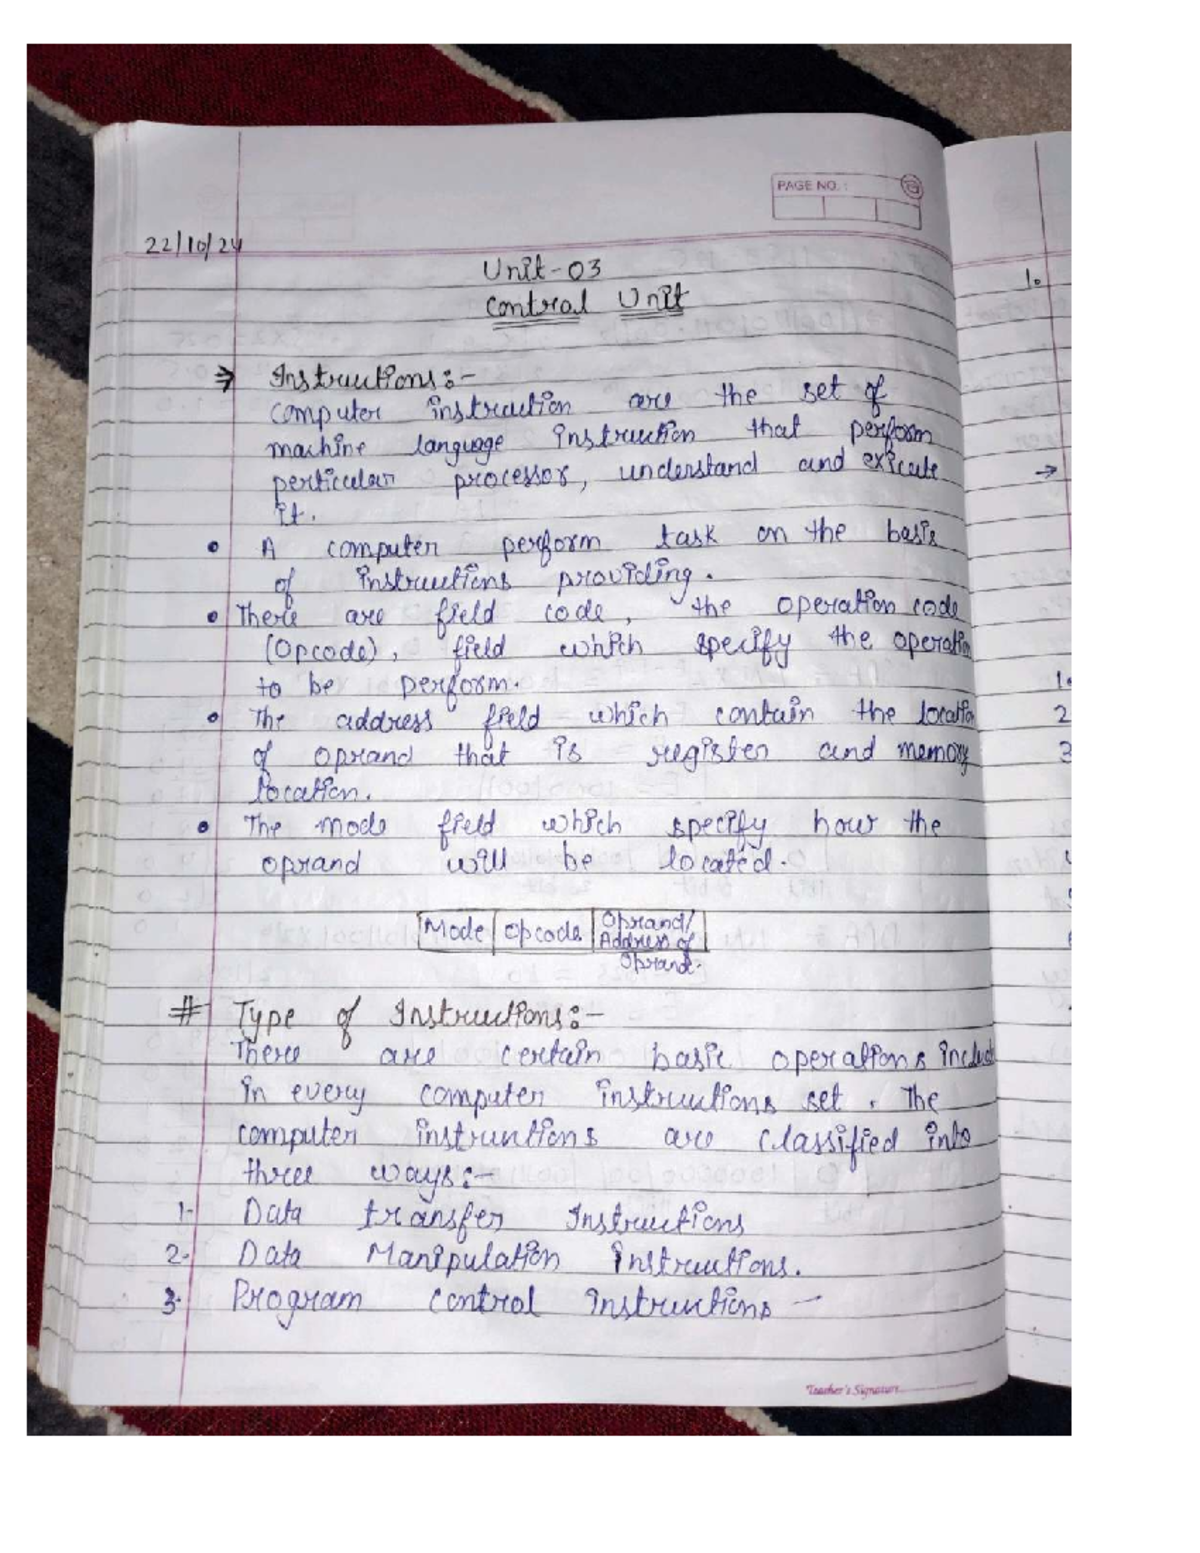 PAGE NO. :
22/10/24
Unit-03
Contral Unit
⇒ Instructions:-
computer instruction are the set of
machine language instruction that perform
perticular processor, understand and exicute
it.
• A computer perform task on the basis
of instructions providing.
• There are field code, the operation code
(Opcode), field which specify the operation
to be perform.
• The address field which contain the location
of oprand that is register and memory
location.
• The mode field which specify how the
oprand will be located.
Mode opcode Oprand/
Address of
Oprand.
# Type of Instructions:-
There are certain basic operations include
in every computer instructions set. The
computer instruntions are classified into
three ways:-
1- Data transfer Instructions
2- Data Manipulation instructions.
3. Program control instructions -
Teacher's Signature
1.
→
1.
2
3